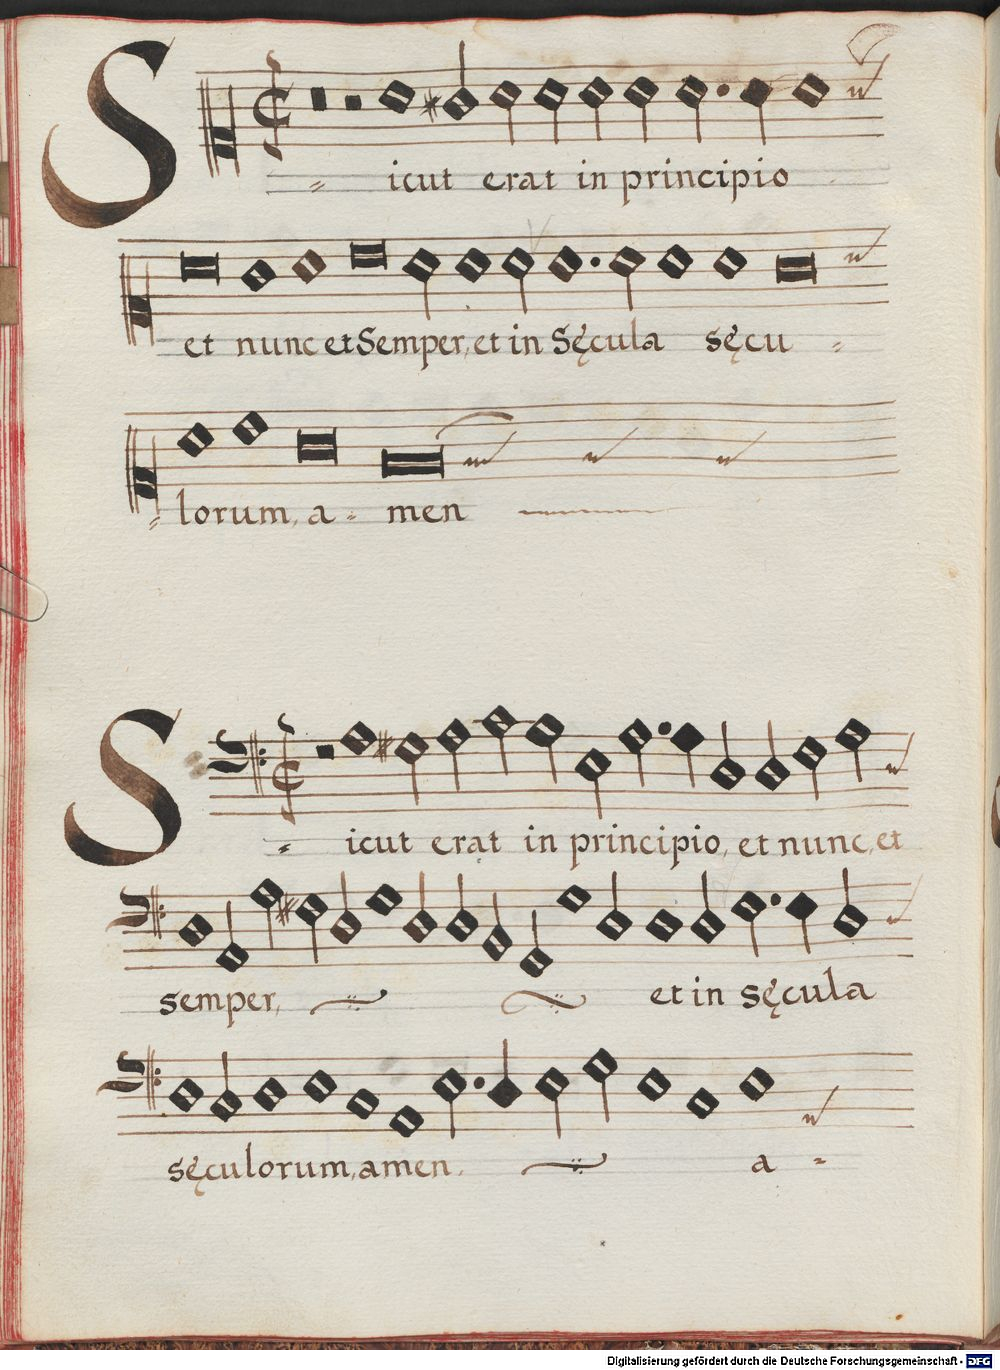 Sicut erat in principio
et nunc et Semper, et in Sęcula sęcu-
lorum, a-men
Sicut erat in principio, et nunc, et
semper, et in sęcula
sęculorum, amen. a-
Digitalisierung gefördert durch die Deutsche Forschungsgemeinschaft - DFG